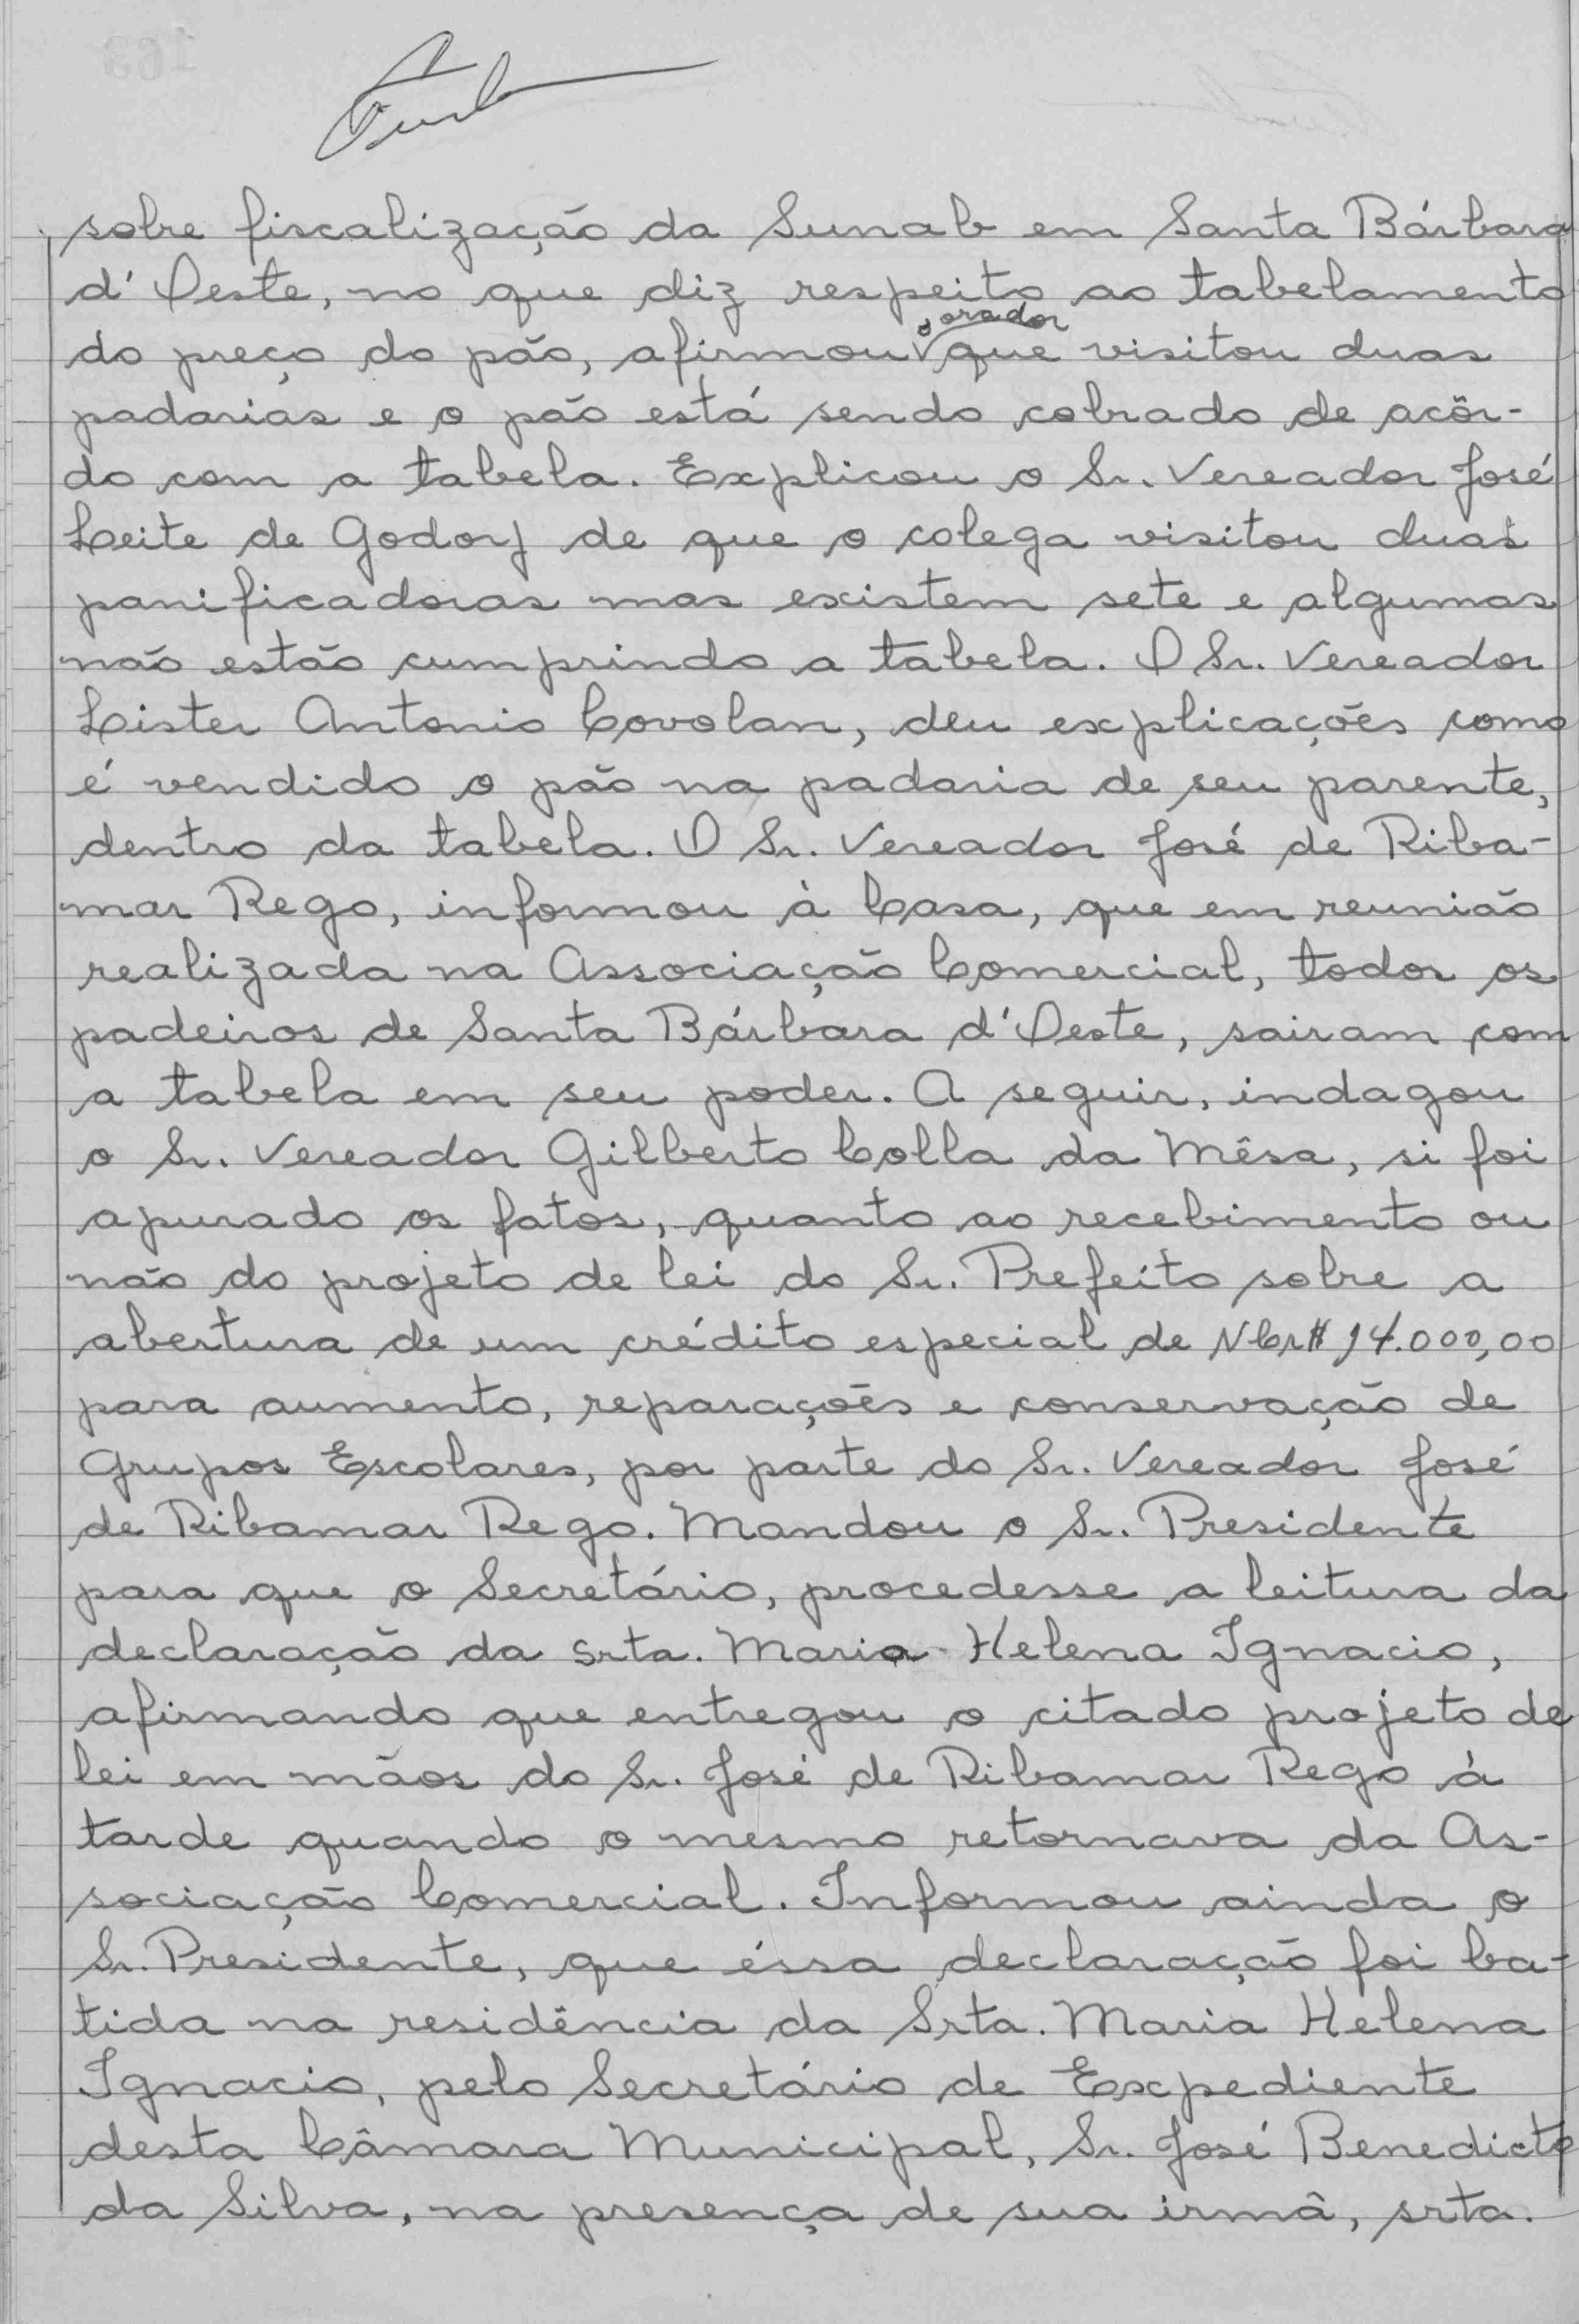 sobre fiscalização da Sunab em Santa Bárbara
d'Oeste, no que diz respeito ao tabelamento
do preço do pão, afirmou o orador que visitou duas
padarias e o pão está sendo cobrado de acôr-
do com a tabela. Explicou o Sr. Vereador José
Leite de Godoy de que o colega visitou duas
panificadoras mas existem sete e algumas
não estão cumprindo a tabela. O Sr. Vereador
Lister Antonio Covolan, deu explicações como
é vendido o pão na padaria de seu parente,
dentro da tabela. O Sr. Vereador José de Riba-
mar Rego, informou à Casa, que em reunião
realizada na Associação Comercial, todos os
padeiros de Santa Bárbara d'Oeste, sairam com
a tabela em seu poder. A seguir, indagou
o Sr. Vereador Gilberto Colla da Mêsa, si foi
apurado os fatos, quanto ao recebimento ou
não do projeto de lei do Sr. Prefeito sobre a
abertura de um crédito especial de NCr$ 14.000,00
para aumento, reparações e conservação de
Grupos Escolares, por parte do Sr. Vereador José
de Ribamar Rego. Mandou o Sr. Presidente
para que o Secretário, procedesse a leitura da
declaração da srta. Maria Helena Ignacio,
afirmando que entregou o citado projeto de
lei em mãos do Sr. José de Ribamar Rego à
tarde quando o mesmo retornava da As-
sociação Comercial. Informou ainda o
Sr. Presidente, que éssa declaração foi ba-
tida na residência da Srta. Maria Helena
Ignacio, pelo Secretário de Expediente
desta Câmara Municipal, Sr. José Benedicto
da Silva, na presença de sua irmã, srta.